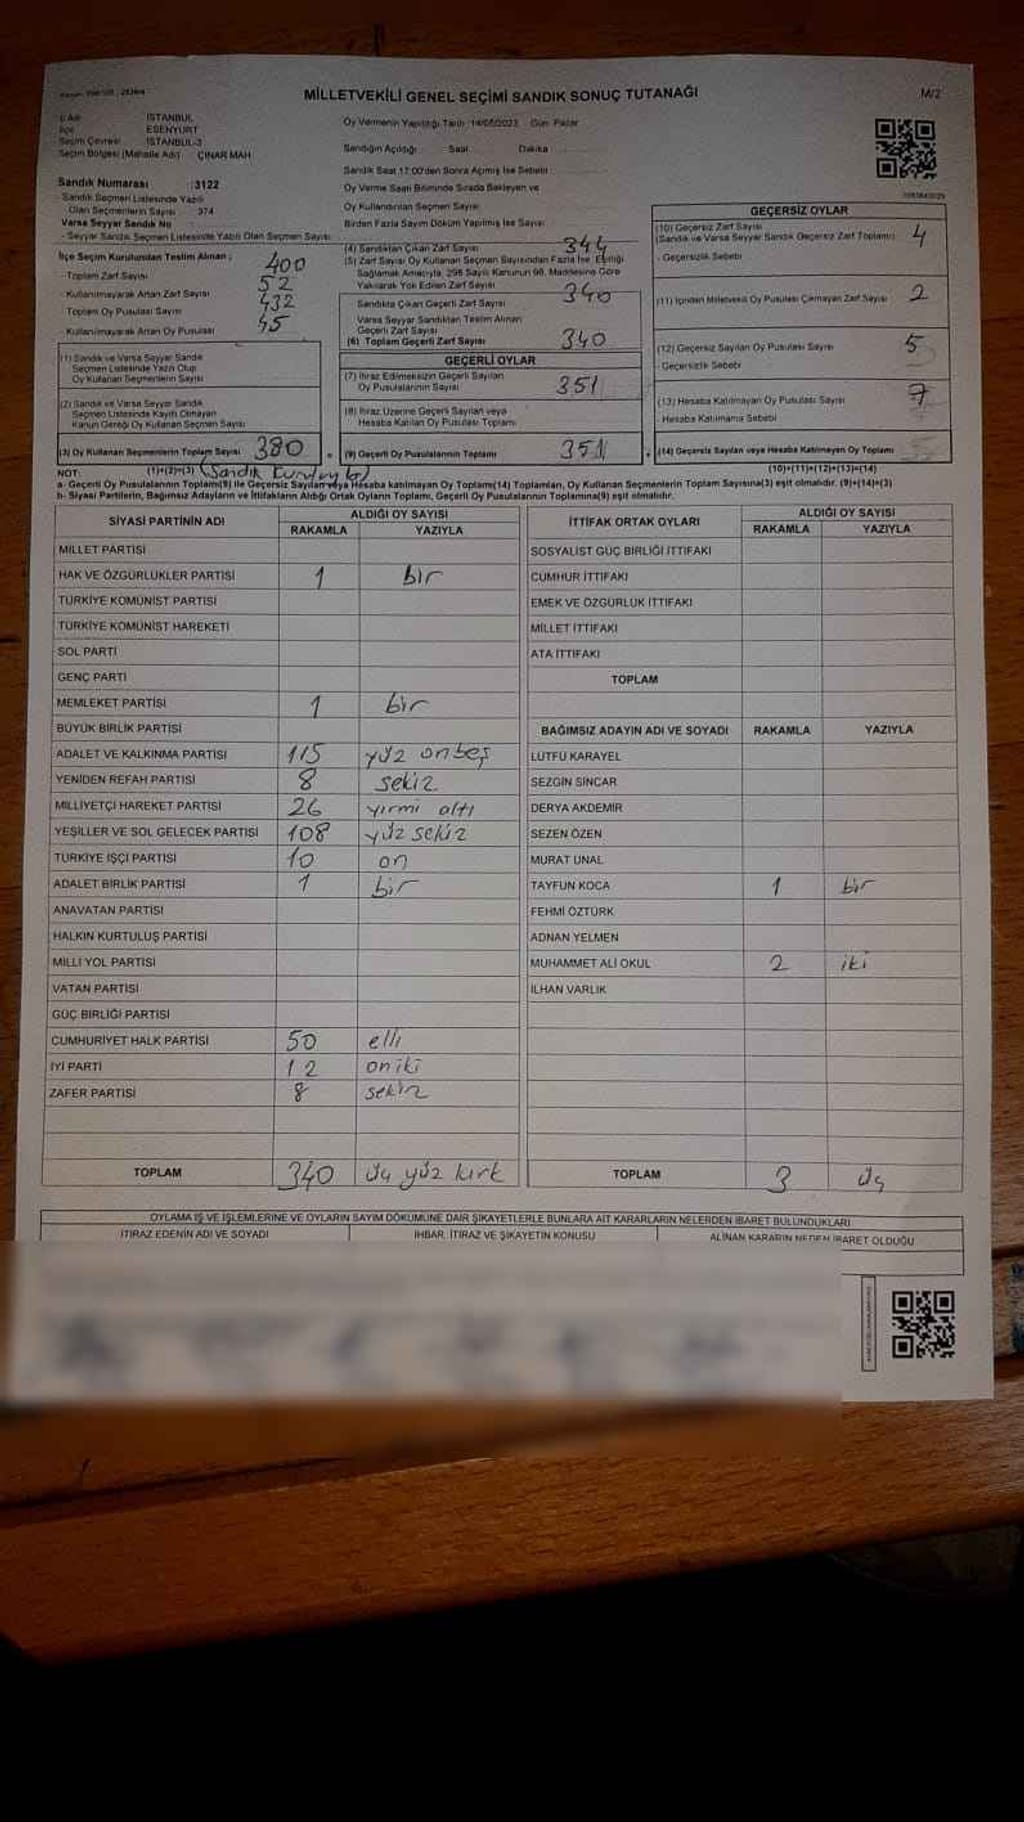 MİLLETVEKİLİ GENEL SEÇİMİ SANDIK SONUÇ TUTANAĞI
M/2
İSTANBUL
ESENYURT
Seçim Çevresi İSTANBUL-3
Seçim Bölgesi (Mahalle Adı) ÇINAR MAH
Sandık Numarası :3122
Sandık Seçmen Listesinde Yazılı
Olan Seçmenlerin Sayısı 374
Varsa Seyyar Sandık No
- Seyyar Sandık Seçmen Listesinde Yazılı Olan Seçmen Sayısı
İlçe Seçim Kurulundan Teslim Alınan ;
-Toplam Zarf Sayısı 400
- Kullanılmayarak Artan Zarf Sayısı 52
Toplam Oy Pusulası Sayısı 432
- Kullanılmayarak Artan Oy Pusulası 45
(1) Sandık ve Varsa Seyyar Sandık
Seçmen Listesinde Yazılı Olup
Oy Kullanan Seçmenlerin Sayısı
(2) Sandık ve Varsa Seyyar Sandık
Seçmen Listesinde Kayıtlı Olmayan
Kanun Gereği Oy Kullanan Seçmen Sayısı
(3) Oy Kullanan Seçmenlerin Toplam Sayısı 380
Oy Vermenin Yapıldığı Tarih :14/05/2023 Gün: Pazar
Sandığın Açıldığı Saat Dakika
Sandık Saat 17:00'den Sonra Açılmış İse Sebebi
Oy Verme Saati Bitiminde Sırada Bekleyen ve
Oy Kullandırılan Seçmen Sayısı
Birden Fazla Sayım Döküm Yapılmış İse Sayısı
(4) Sandıktan Çıkan Zarf Sayısı 344
(5) Zarf Sayısı Oy Kullanan Seçmen Sayısından Fazla İse, Eşitliği
Sağlamak Amacıyla, 298 Sayılı Kanunun 98. Maddesine Göre
Yakılarak Yok Edilen Zarf Sayısı
Sandıkta Çıkan Geçerli Zarf Sayısı 340
Varsa Seyyar Sandıktan Teslim Alınan
Geçerli Zarf Sayısı
(6) Toplam Geçerli Zarf Sayısı 340
GEÇERLİ OYLAR
(7) İtiraz Edilmeksizin Geçerli Sayılan
Oy Pusulalarının Sayısı 351
(8) İtiraz Üzerine Geçerli Sayılan veya
Hesaba Katılan Oy Pusulası Toplamı
(9) Geçerli Oy Pusulalarının Toplamı 351
GEÇERSİZ OYLAR
(10) Geçersiz Zarf Sayısı
(Sandık ve Varsa Seyyar Sandık Geçersiz Zarf Toplamı) 4
- Geçersizlik Sebebi
(11) İçinden Milletvekili Oy Pusulası Çıkmayan Zarf Sayısı 2
(12) Geçersiz Sayılan Oy Pusulası Sayısı 5
- Geçersizlik Sebebi
(13) Hesaba Katılmayan Oy Pusulası Sayısı 7
- Hesaba Katılmama Sebebi
(14) Geçersiz Sayılan veya Hesaba Katılmayan Oy Toplamı
NOT: (1)+(2)=(3) (10)+(11)+(12)+(13)=(14)
a- Geçerli Oy Pusulalarının Toplamı(9) ile Geçersiz Sayılan veya Hesaba katılmayan Oy Toplamı(14) Toplamları, Oy Kullanan Seçmenlerin Toplam Sayısına(3) eşit olmalıdır. (9)+(14)=(3)
b- Siyasi Partilerin, Bağımsız Adayların ve İttifakların Aldığı Ortak Oyların Toplamı, Geçerli Oy Pusulalarının Toplamına(9) eşit olmalıdır.
SİYASİ PARTİNİN ADI ALDIĞI OY SAYISI
RAKAMLA YAZIYLA
MİLLET PARTİSİ
HAK VE ÖZGÜRLÜKLER PARTİSİ 1 bir
TÜRKİYE KOMÜNİST PARTİSİ
TÜRKİYE KOMÜNİST HAREKETİ
SOL PARTİ
GENÇ PARTİ
MEMLEKET PARTİSİ 1 bir
BÜYÜK BİRLİK PARTİSİ
ADALET VE KALKINMA PARTİSİ 115 yüz onbeş
YENİDEN REFAH PARTİSİ 8 sekiz
MİLLİYETÇİ HAREKET PARTİSİ 26 yirmi altı
YEŞİLLER VE SOL GELECEK PARTİSİ 108 yüz sekiz
TÜRKİYE İŞÇİ PARTİSİ 10 on
ADALET BİRLİK PARTİSİ 1 bir
ANAVATAN PARTİSİ
HALKIN KURTULUŞ PARTİSİ
MİLLİ YOL PARTİSİ
VATAN PARTİSİ
GÜÇ BİRLİĞİ PARTİSİ
CUMHURİYET HALK PARTİSİ 50 elli
İYİ PARTİ 12 oniki
ZAFER PARTİSİ 8 sekiz
TOPLAM 340 üç yüz kırk
İTTİFAK ORTAK OYLARI ALDIĞI OY SAYISI
RAKAMLA YAZIYLA
SOSYALİST GÜÇ BİRLİĞİ İTTİFAKI
CUMHUR İTTİFAKI
EMEK VE ÖZGÜRLÜK İTTİFAKI
MİLLET İTTİFAKI
ATA İTTİFAKI
TOPLAM
BAĞIMSIZ ADAYIN ADI VE SOYADI RAKAMLA YAZIYLA
LÜTFÜ KARAYEL
SEZGİN SİNCAR
DERYA AKDEMİR
SEZEN ÖZEN
MURAT ÜNAL
TAYFUN KOCA 1 bir
FEHMİ ÖZTÜRK
ADNAN YELMEN
MUHAMMET ALİ OKUL 2 iki
İLHAN VARLIK
TOPLAM 3 üç
OYLAMA İŞ VE İŞLEMLERİNE VE OYLARIN SAYIM DÖKÜMÜNE DAİR ŞİKAYETLERLE BUNLARA AİT KARARLARIN NELERDEN İBARET BULUNDUKLARI
İTİRAZ EDENİN ADI VE SOYADI İHBAR, İTİRAZ VE ŞİKAYETİN KONUSU ALINAN KARARIN NEDEN İBARET OLDUĞU